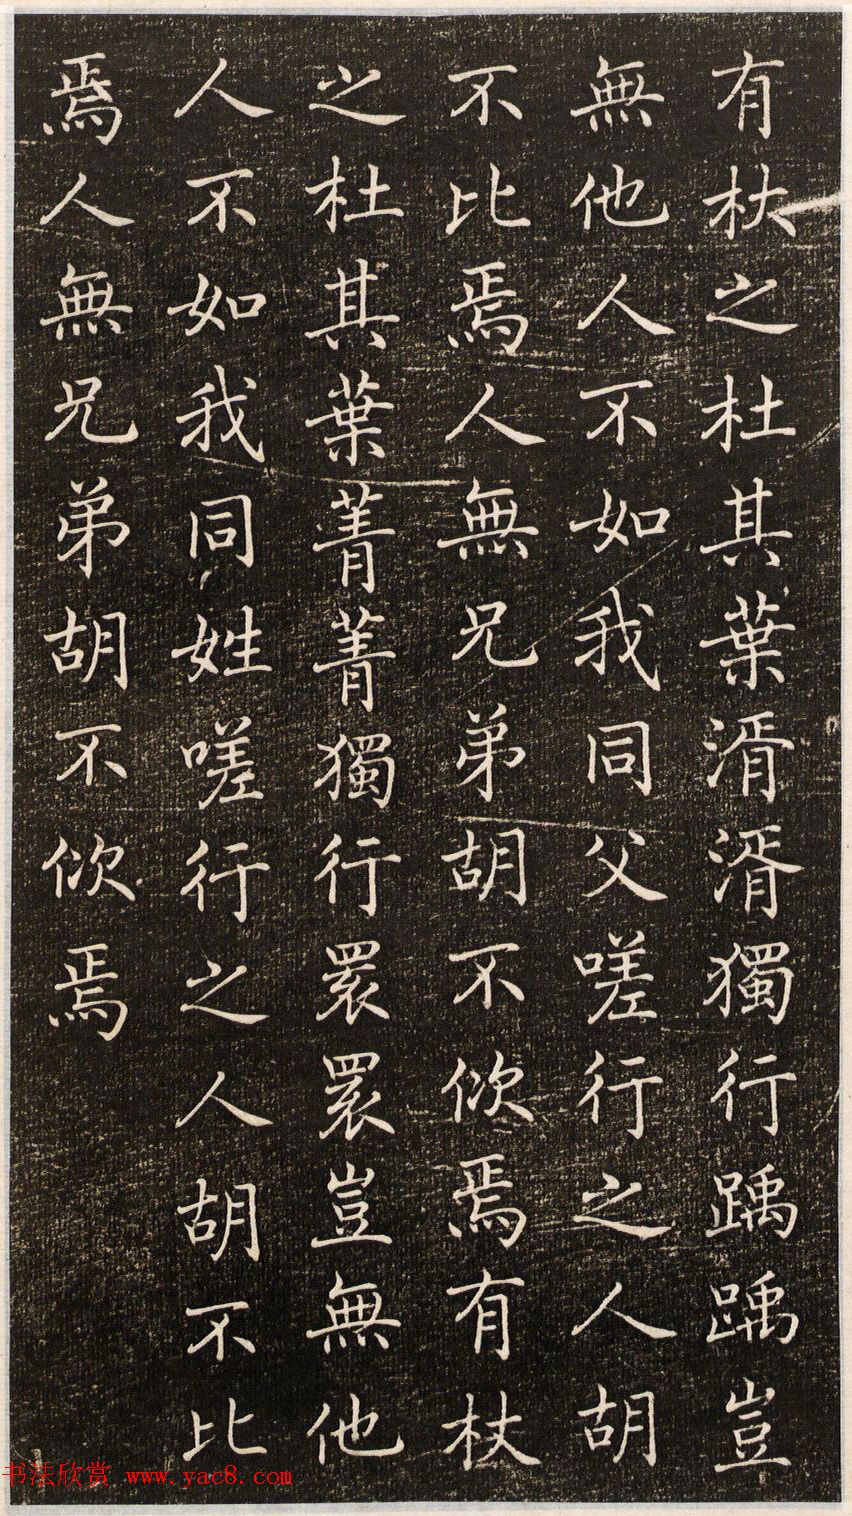 有杕之杜其葉湑湑獨行踽踽豈
無他人不如我同父嗟行之人胡
不比焉人無兄弟胡不佽焉有杕
之杜其葉菁菁獨行睘睘豈無他
人不如我同姓嗟行之人胡不比
焉人無兄弟胡不佽焉
书法欣赏 www.yac8.com